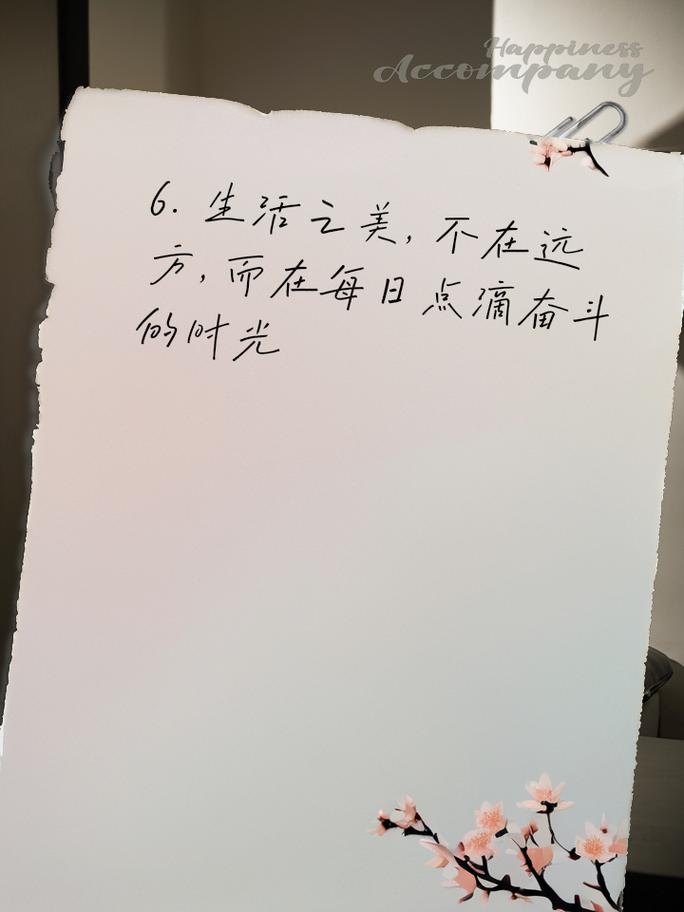 Happiness
Accompany
6. 生活之美, 不在远
方, 而在每日点滴奋斗
的时光